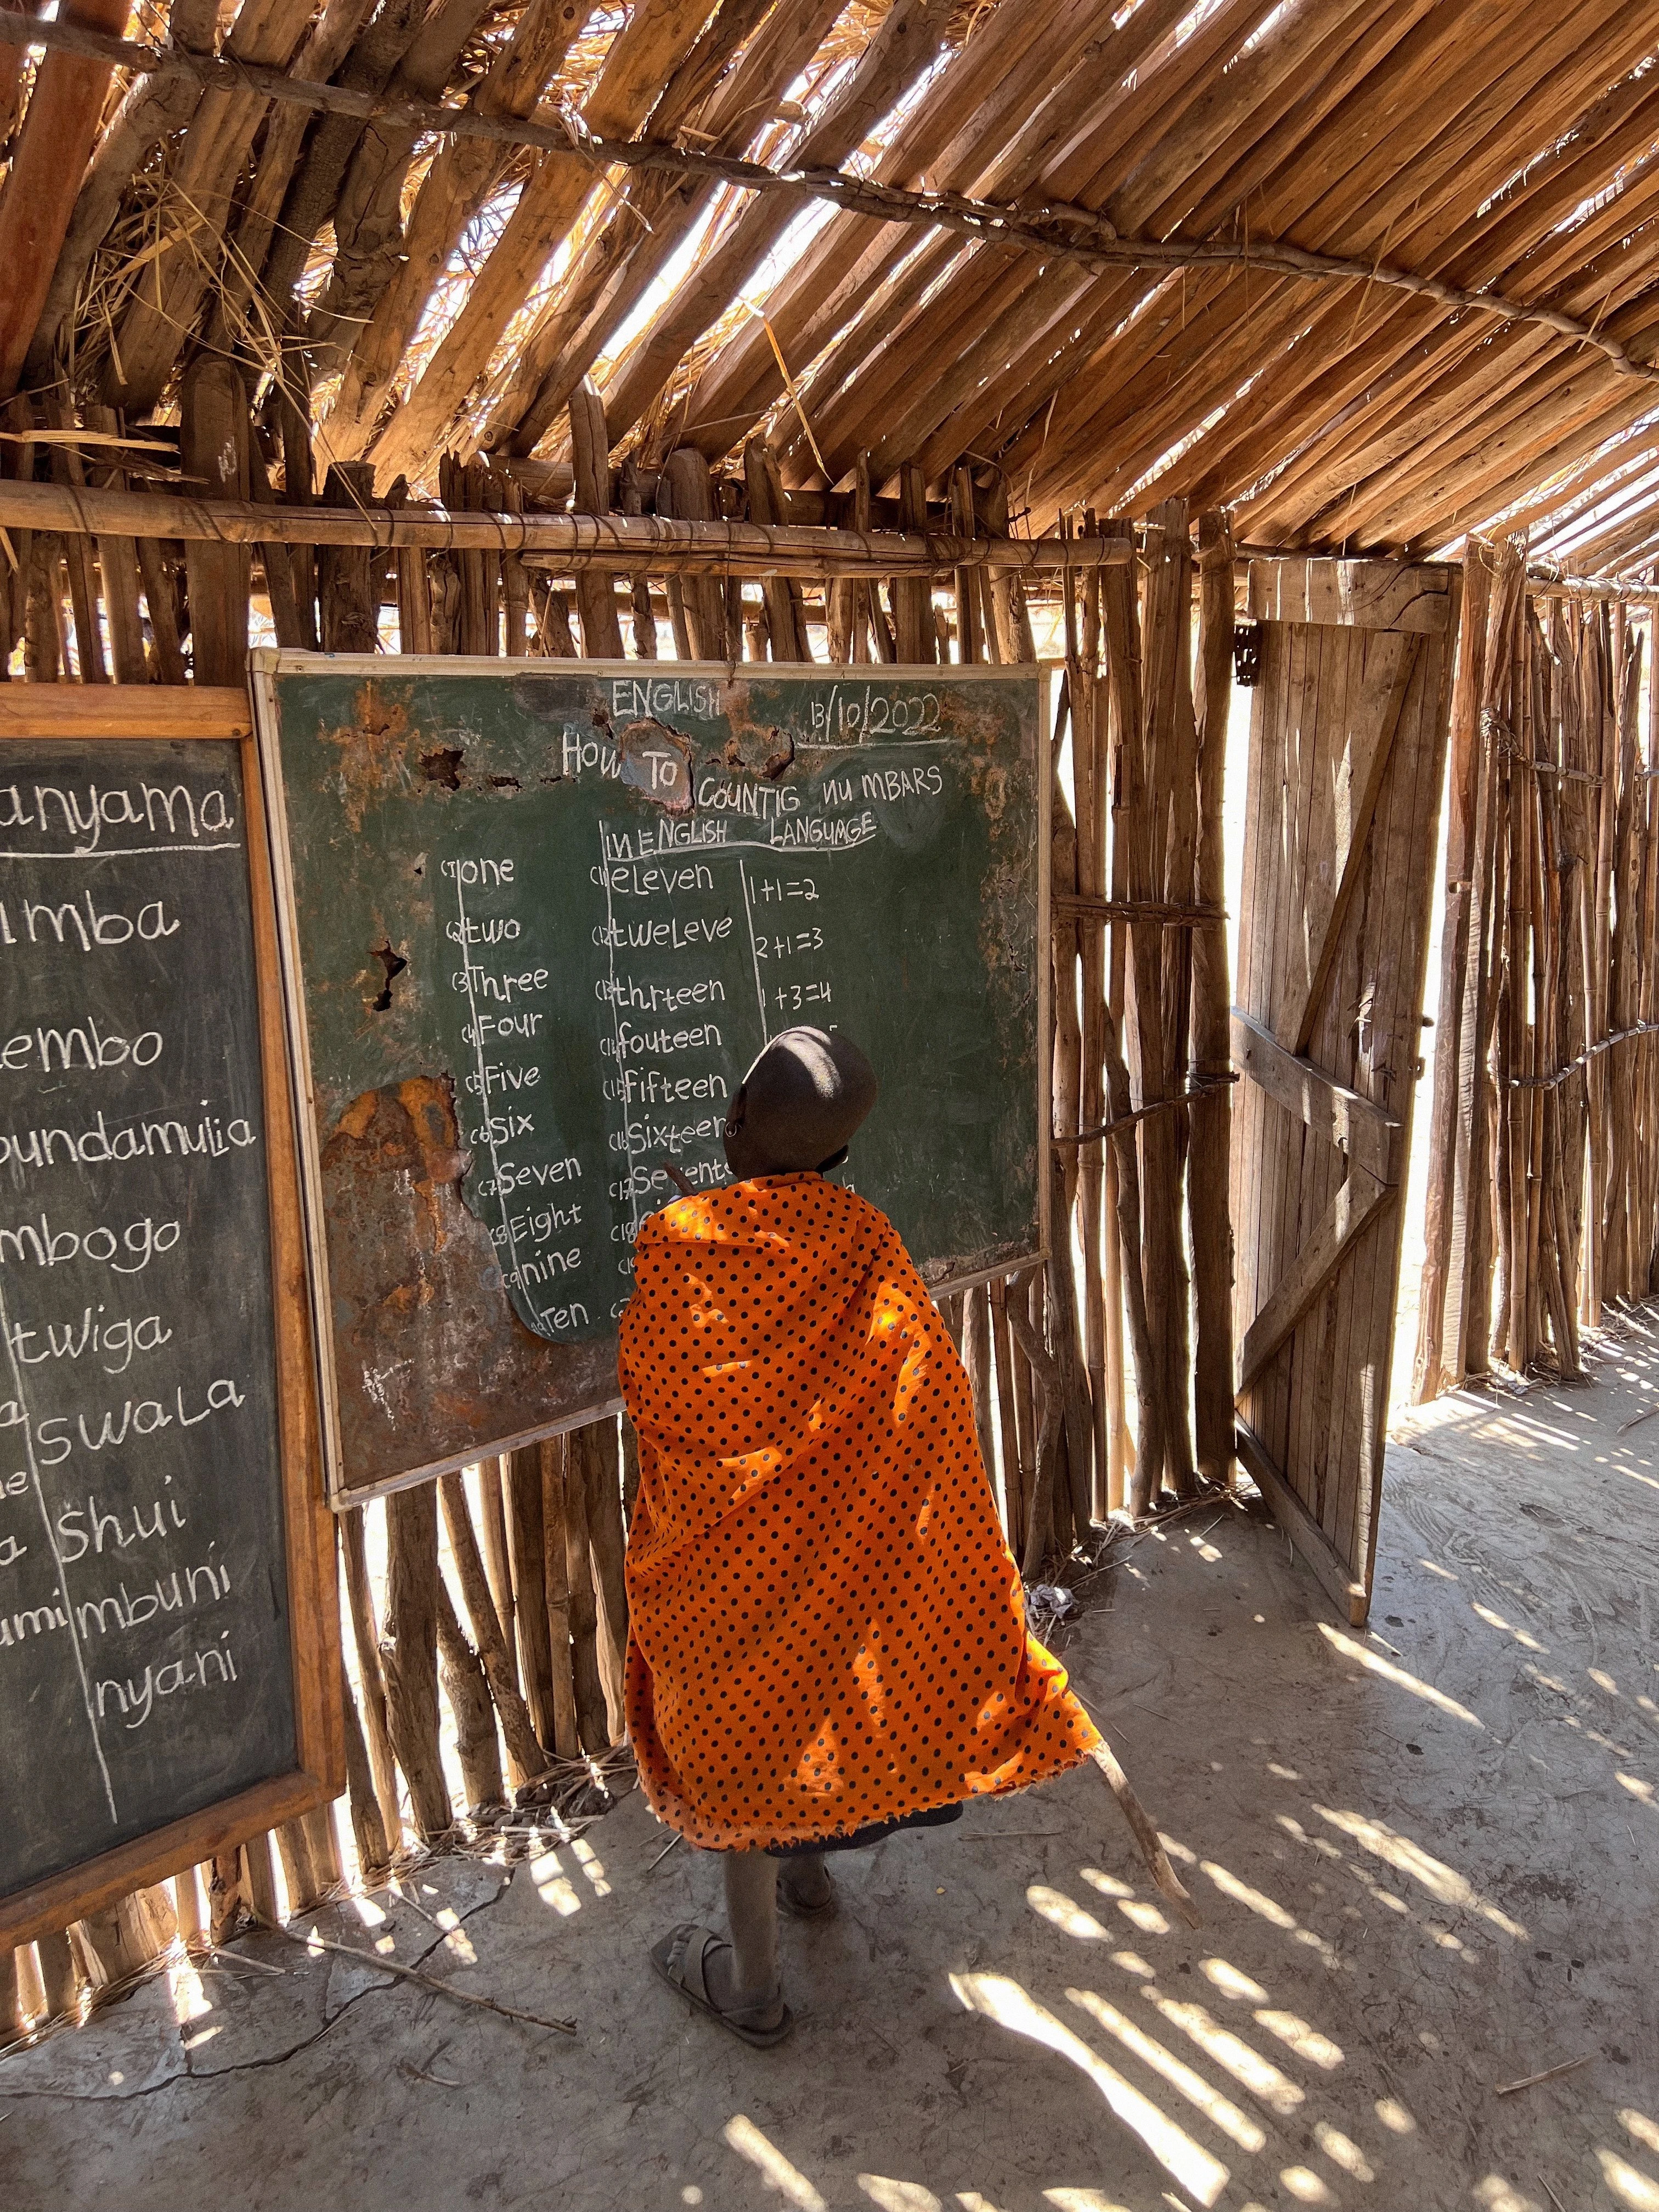 anyama
imba
embo
pundamulia
mbogo
twiga
a swala
e
a shui
umi mbuni
nyani
ENGLISH 13/10/2022
HOW TO COUNTIG NUMBARS
IN ENGLISH LANGUAGE
(1 one (11 eleven 1+1=2
(2 two (12 tweleve 2+1=3
(3 Three (13 thrteen 1+3=4
(4 Four (14 fouteen
(5 Five (15 fifteen
(6 six (16 sixteen
(7 Seven (17
(8 Eight (18
(9 nine
Ten